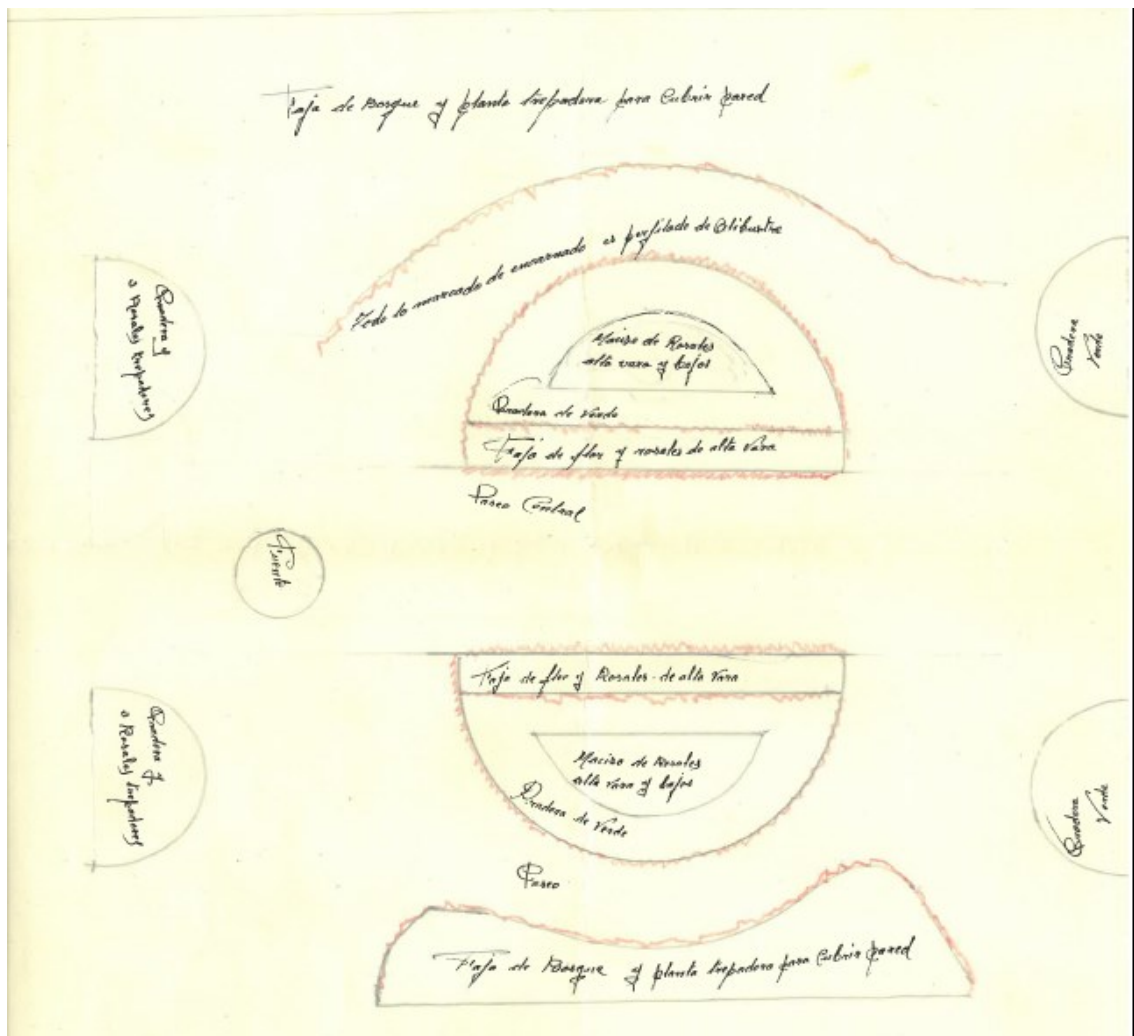 Faja de Bosque y planta trepadora para Cubrir pared
Todo lo marcado de encarnado es perfilado de Olibustre
Pradera y
o Rosales trepadores
Pradera
Verde
Macizo de Rosales
alta vara y bajos
Pradera de Verde
Faja de flor y rosales de alta Vara
Paseo Central
Fuente
Faja de flor y Rosales de alta Vara
Macizo de Rosales
alta vara y bajos
Pradera de Verde
Pradera y
o Rosales trepadores
Pradera
Verde
Paseo
Faja de Bosque y planta trepadora para Cubrir pared